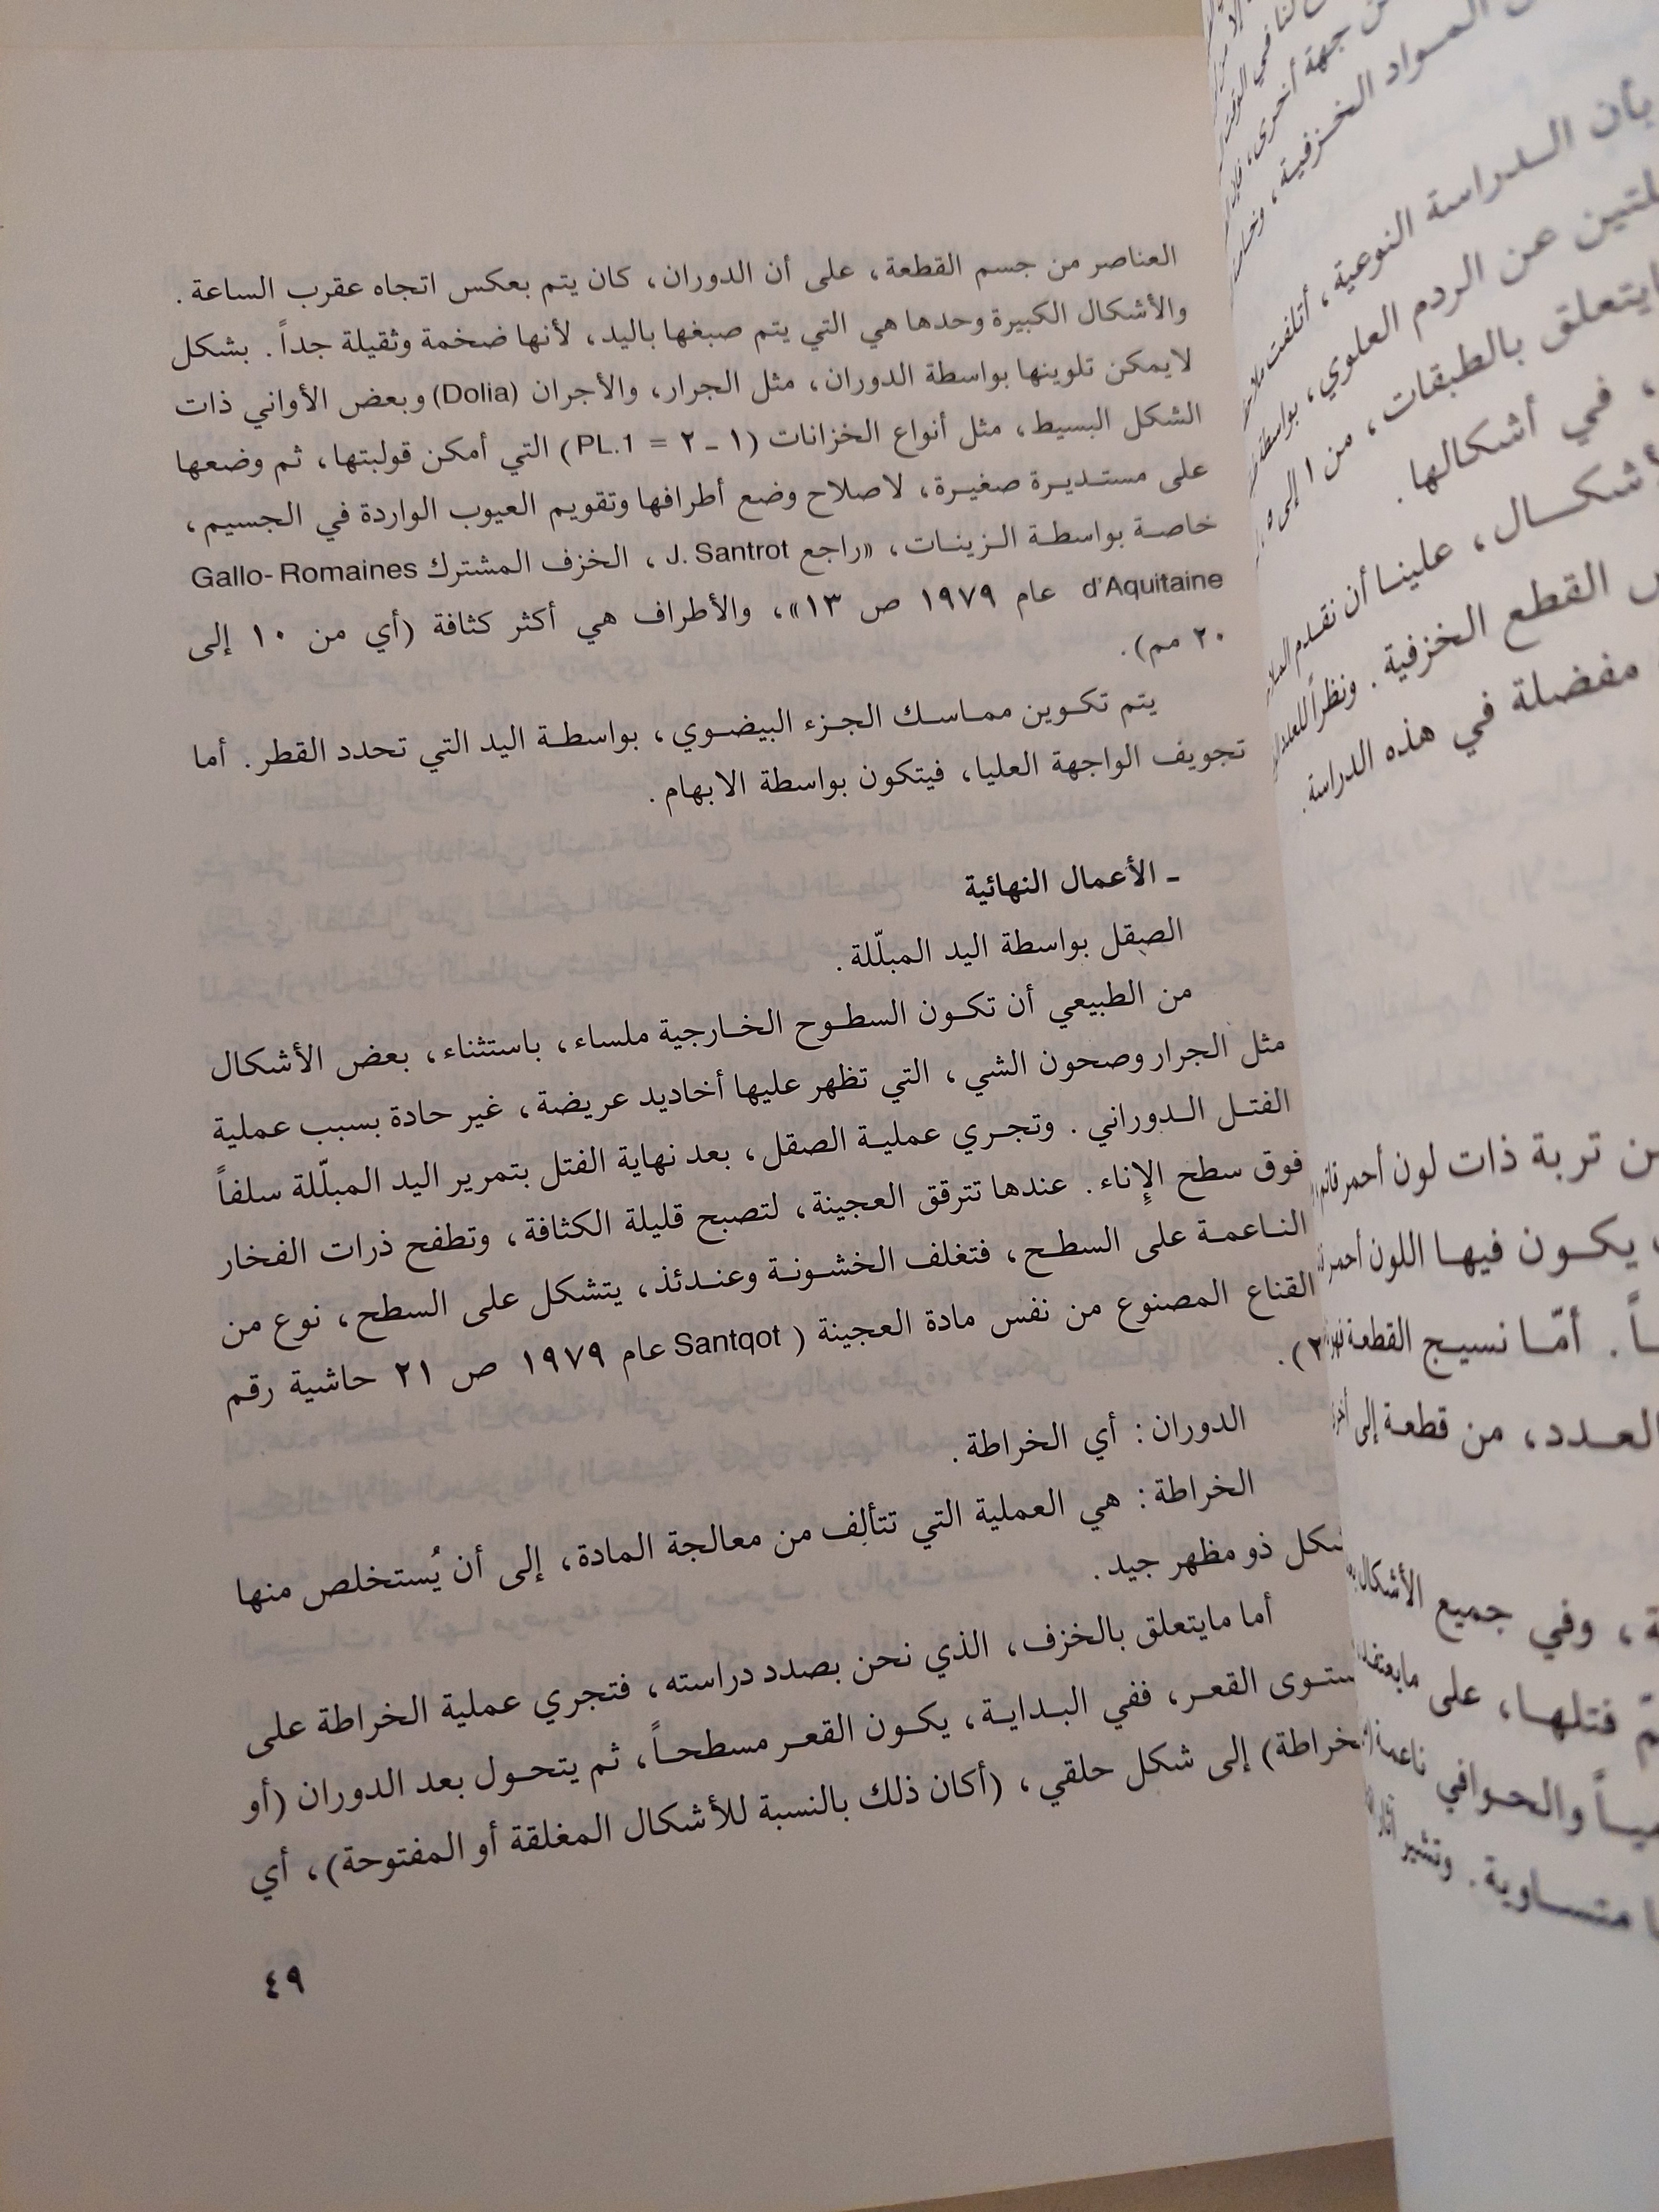 العناصر من جسم القطعة، على أن الدوران، كان يتم بعكس اتجاه عقرب الساعة.
والأشكال الكبيرة وحدها هي التي يتم صبغها باليد، لأنها ضخمة وثقيلة جداً. بشكل
لايمكن تلوينها بواسطة الدوران، مثل الجرار، والأجران (Dolia) وبعض الأواني ذات
الشكل البسيط، مثل أنواع الخزانات (١ ـ ٢ = PL.1) التي أمكن قولبتها، ثم وضعها
على مستديرة صغيرة، لاصلاح وضع أطرافها وتقويم العيوب الواردة في الجسيم،
خاصة بواسطة الزينات، «راجع J. Santrot، الخزف المشترك Gallo- Romaines
d'Aquitaine عام ١٩٧٩ ص ١٣»، والأطراف هي أكثر كثافة (أي من ١٠ إلى
٢٠ مم).
يتم تكوين مماسك الجزء البيضوي، بواسطة اليد التي تحدد القطر. أما
تجويف الواجهة العليا، فيتكون بواسطة الابهام.
ـ الأعمال النهائية
الصقل بواسطة اليد المبلّلة.
من الطبيعي أن تكون السطوح الخارجية ملساء، باستثناء، بعض الأشكال
مثل الجرار وصحون الشي، التي تظهر عليها أخاديد عريضة، غير حادة بسبب عملية
الفتل الدوراني. وتجري عملية الصقل، بعد نهاية الفتل بتمرير اليد المبلّلة سلفاً
فوق سطح الإناء. عندها تترقق العجينة، لتصبح قليلة الكثافة، وتطفح ذرات الفخار
الناعمة على السطح، فتغلف الخشونة وعندئذ، يتشكل على السطح، نوع من
القناع المصنوع من نفس مادة العجينة (Santqot عام ١٩٧٩ ص ٢١ حاشية رقم
٢).
الدوران: أي الخراطة.
الخراطة: هي العملية التي تتألف من معالجة المادة، إلى أن يُستخلص منها
شكل ذو مظهر جيد.
أما مايتعلق بالخزف، الذي نحن بصدد دراسته، فتجري عملية الخراطة على
مستوى القعر، ففي البداية، يكون القعر مسطحاً، ثم يتحول بعد الدوران (أو
الخراطة) إلى شكل حلقي، (أكان ذلك بالنسبة للأشكال المغلقة أو المفتوحة)، أي
٤٩
جهة أخرى،
المواد الخزفية،
بأن الدراسة النوعية، أتلفت
عن الردم العلوي، بواسطة
يتعلق بالطبقات، من ١ إلى ٥
، في أشكالها.
علينا أن نقدم
القطع الخزفية. ونظراً
مفضلة في هذه الدراسة.
تربة ذات لون أحمر
يكون فيها اللون أحمر
أمّا نسيج القطعة
العدد، من قطعة إلى
، وفي جميع الأشكال
فتلها، على
والحوافي ناعمة
متساوية. وتشير